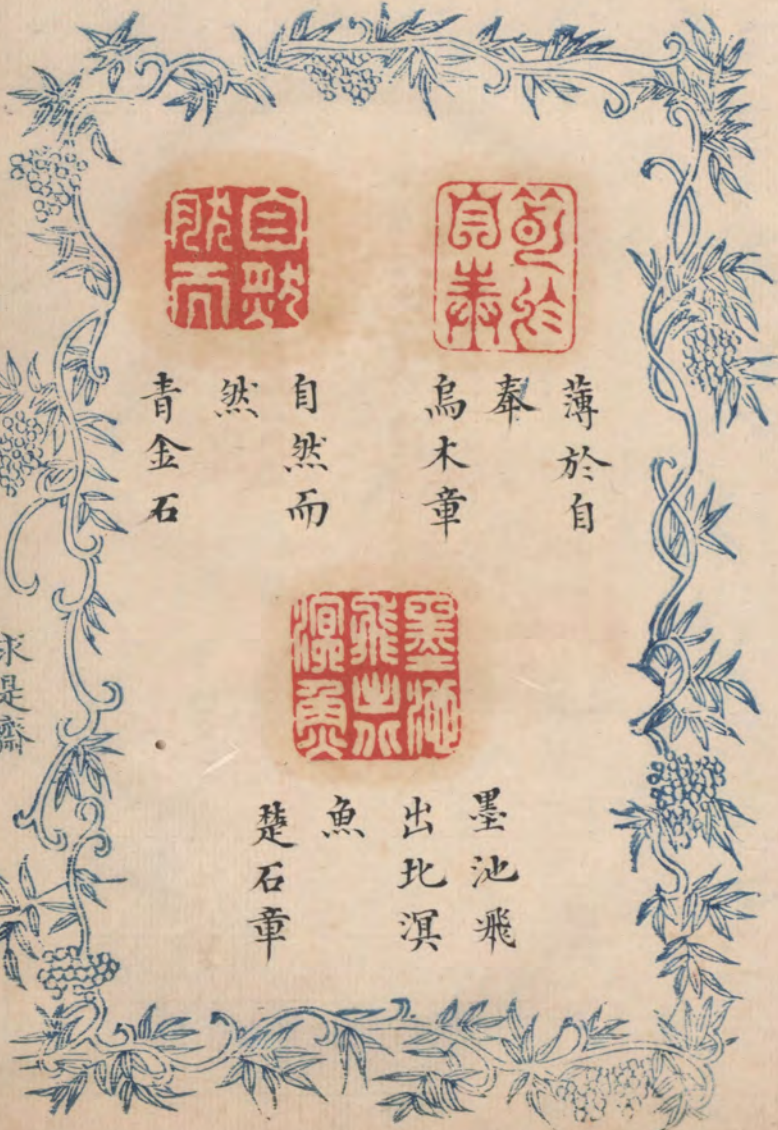 薄於
自奉
薄於自
奉
烏木章
自然
然而
自然而
然
青金石
墨池
飛出北
溟魚
墨池飛
出比溟
魚
楚石章
求是齋